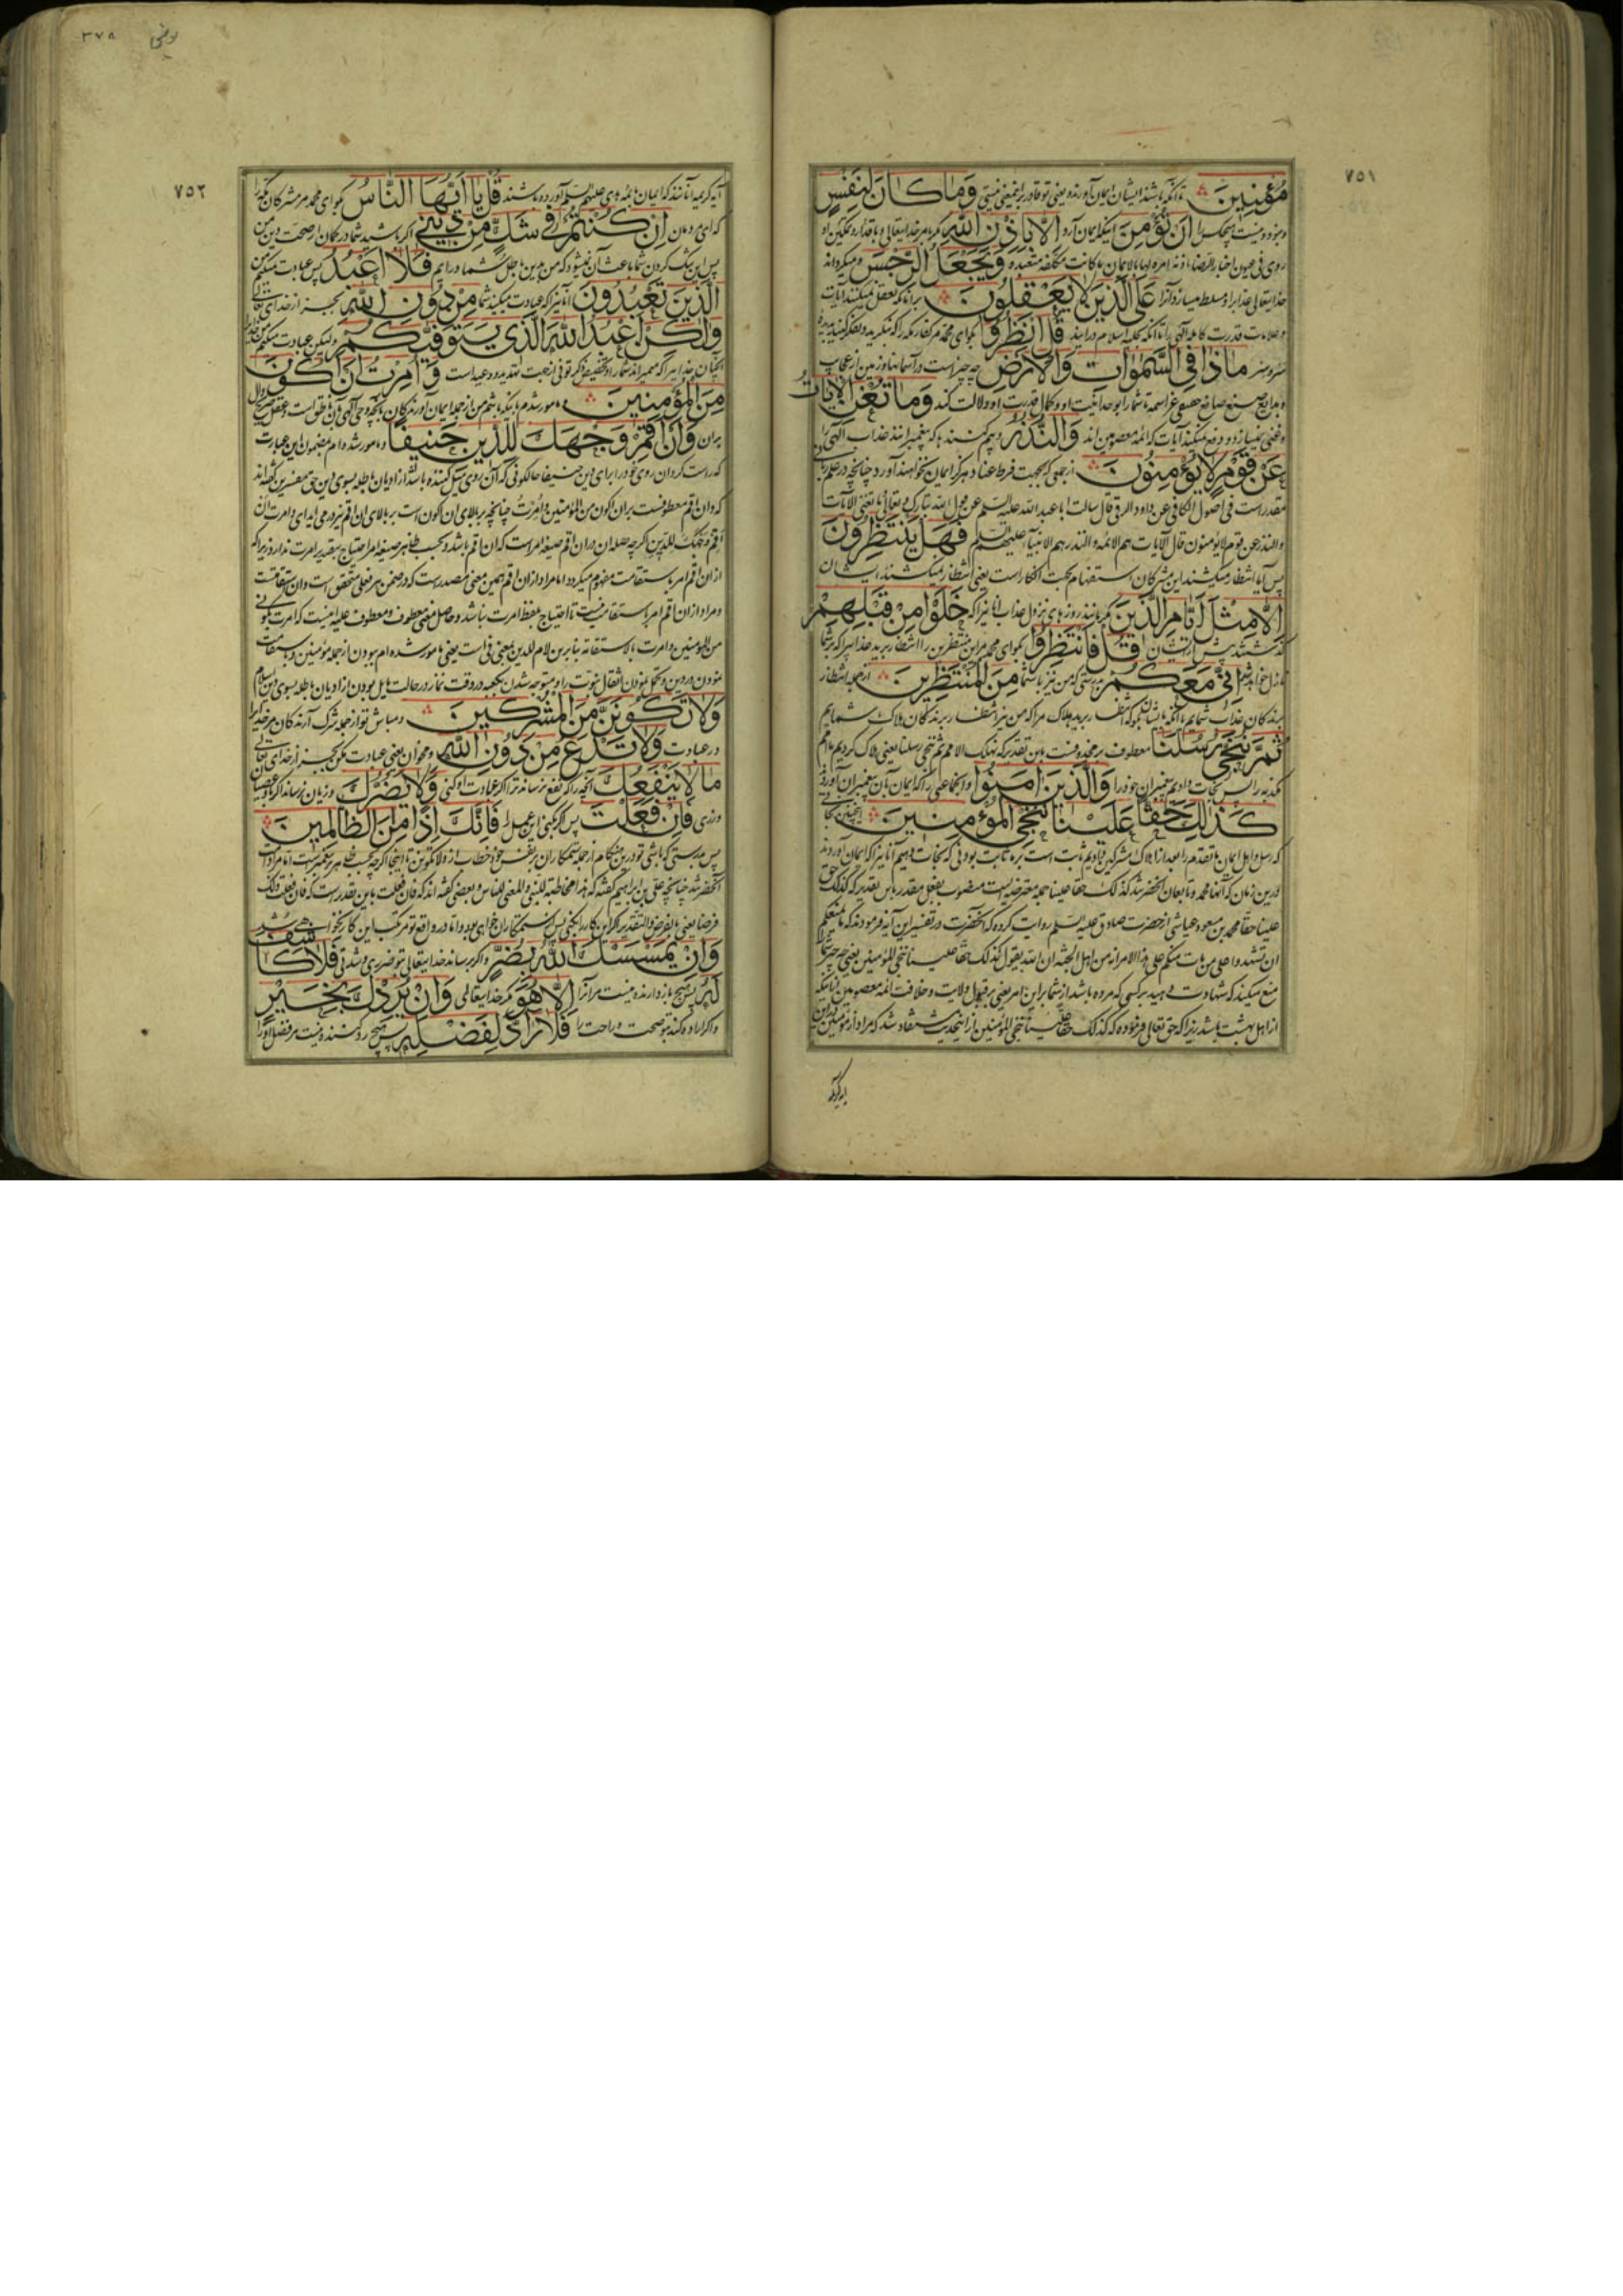 ٧٥١
مُؤْمِنِينَ تا آنکه باشند ایشان ایمان آورنده یعنی تو قادر برین معنی نیستی وَمَا كَانَ لِنَفْسٍ
و نبود و نیست هیچکس را أَنْ تُؤْمِنَ اینکه ایمان آرد إِلَّا بِإِذْنِ اللَّهِ مگر بامر خدایتعالی و باقدار و تمکین او
روی فی عیون اخبار الرضا اذنه امره لها بالایمان ما کانت مکلفه متعبده وَيَجْعَلُ الرِّجْسَ و میگرداند
خدایتعالی عذابرا و مسلط میسازد آنرا عَلَى الَّذِينَ لَا يَعْقِلُونَ بر آنانکه تعقل نمیکنند آیات
و علامات قدرت کامله الهی را تا آنکه بحلیه اسلام درآیند قُلِ انْظُرُوا بگو ای محمد مر کفار مکه را که بنگرید و تفکر کنید بدیده
مَاذَا فِي السَّمٰوَاتِ وَالْأَرْضِ چه چیز است در آسمانها و زمین از عجایب
و بدایع صنع صانع حقیقی عز اسمه تا شما را بوحدانیت او و کمال قدرت او دلالت کند وَمَا تُغْنِي الْآيَاتُ
و غنی و بینیاز و دفع نمیکند آیات که ائمه معصومین اند وَالنُّذُرُ و بیم کنندها که پیغمبرانند عذاب الهی را
عَنْ قَوْمٍ لَا يُؤْمِنُونَ از جمعی که بجهت فرط عناد هرگز ایمان نخواهند آورد چنانچه در علم
مقدر است فی اصول الکافی عن داود الرقی قال سالت ابا عبد الله علیه السلم عن قول الله تبارک و تعالی ما تغنی الآیات
والنذر عن قوم لا یومنون قال الآیات هم الائمه والنذر هم الانبیآء علیهم السلم فَهَلْ يَنْتَظِرُونَ
پس آیا انتظار میکشند این مشرکان استفهام بجهت انکار است یعنی انتظار نمیکشند ایشان
إِلَّا مِثْلَ أَيَّامِ الَّذِينَ مگر مانند روزهای نزول عذاب آنانیرا که خَلَوْا مِنْ قَبْلِهِمْ
گذشتند پیش از ایشان قُلْ فَانْتَظِرُوا بگو ای محمد مر این منتظرین را انتظار برید عذابیرا که بر شما
نازل خواهد شد إِنِّي مَعَكُمْ بدرستی که من نیز با شما مِنَ الْمُنْتَظِرِينَ از جمله انتظار
برندگان عذاب شمایم
ثُمَّ نُنَجِّي رُسُلَنَا معطوف بر محذوفست باین تقدیر که نهلک الامم ثم ننجی رسلنا یعنی هلاک کردیم ما امم
مکذبه را پس نجات دادیم پیغمبران خود را وَالَّذِينَ آمَنُوا و آنجماعتی را که ایمان بآن پیغمبران آوردند
كَذَلِكَ حَقًّا عَلَيْنَا نُنْجِي الْمُؤْمِنِينَ
که رسل و اهل ایمان ما تقدم را بعد از هلاک مشرکین نجات دادیم ثابت است بر ما
درین زمان که آنها محمد و تابعان آنحضرتند کذلک حقا علینا جمله معترضه ایست منصوب بفعل مقدر باین تقدیر که کذلک حق
علینا حقا محمد بن مسعود عیاشی از حضرت صادق علیه السلم روایت کرده که آنحضرت در تفسیر این آیه فرمودند که ما یمنعکم
ان تشهدوا علی من مات منکم علی هذا الامر انه من اهل الجنه ان الله یقول کذلک حقا علینا ننجی المؤمنین یعنی چه چیز شما را
منع میکند که شهادت دهید بر کسی که مرده باشد از شما بر این امر یعنی بر قبول ولایت و خلافت ائمه معصومین باینکه
از اهل بهشت باشد زیرا که حق تعالی فرموده که کذلک حقا علینا ننجی المؤمنین از اینحدیث مستفاد شد که مراد از مؤمنین در این
آیه کریمه
٣٧٨
یونس
٧٥٢
آیه کریمه آنانند که ایمان بائمه هدی علیهم السلم آورده باشند قُلْ يَا أَيُّهَا النَّاسُ بگو ای محمد مر مشرکان مکه را
که ای مردمان إِنْ كُنْتُمْ فِي شَكٍّ مِنْ دِينِي اگر باشید شما در گمان از صحت دین من
پس این شک کردن شما باعث آن نمیشود که من بدین باطل شما درآیم فَلَا أَعْبُدُ پس عبادت نمیکنم من
الَّذِينَ تَعْبُدُونَ آنانیرا که عبادت میکنید شما مِنْ دُونِ اللَّهِ بجز از خدای تعالی
وَلٰكِنْ أَعْبُدُ اللَّهَ الَّذِي يَتَوَفَّيكُمْ و لیکن عبادت میکنم من خدا را
آنچنان خداییرا که میمیراند شما را و تخصیص ذکر توفی از جهت تهدید و وعید است وَأُمِرْتُ أَنْ أَكُونَ
مِنَ الْمُؤْمِنِينَ و مامور شدم باینکه باشم من از جمله ایمان آورندگان بآنچه وحی الهی بآن ناطق است و عقل صریح دال
بر آن وَأَنْ أَقِمْ وَجْهَكَ لِلدِّينِ حَنِيفًا و مامور شده ام بمضمون این عبارت
که راست گردان روی خود را برای دین حنیفا حالکونی که آن روی میل کننده باشد از ادیان باطله بسوی دین حق مفسرین گفته اند
که و ان اقم معطوفست بر ان اکون من المؤمنین و امرت چنانچه بر بالای ان اکون است بر بالای ان اقم نیز درمی آید ای و امرت ان
اقم وجهک للدین اگر چه صله ان در ان اقم صیغه امر است که ان اقم باشد و بحسب ظاهر صیغه امر احتیاج بتقدیر امرت ندارد زیرا که
از ان اقم امر باستقامت مفهوم میگردد اما مراد از ان اقم همین معنی مصدریست که در ضمن هر فعلی متحقق است و ان استقامتست
و مراد از ان اقم امر باستقامت نیست تا احتیاج بلفظ امرت نباشد و حاصل معنی معطوف و معطوف علیه اینست که امرت بکونی
من المؤمنین و امرت بالاستقامة بنابرین لام للدین بمعنی فی است یعنی مامور شده ام ببودن از جمله مؤمنین و باستقامت
نمودن در دین و تحمل نمودن اثقال نبوت را و متوجه شدن بکعبه در وقت نماز در حالت مایل بودن از ادیان باطله بسوی دین اسلام
وَلَا تَكُونَنَّ مِنَ الْمُشْرِكِينَ و مباش تو از جمله شرک آرندگان مر خدایرا
در عبادت وَلَا تَدْعُ مِنْ دُونِ اللَّهِ و مخوان یعنی عبادت مکن بجز از خدای تعالی
مَا لَا يَنْفَعُكَ آنچه را که نفع نرساند ترا اگر عبادت او کنی وَلَا يَضُرُّكَ و زیان نرساند اگر باو عصیان
ورزی فَإِنْ فَعَلْتَ پس اگر بکنی این عمل را فَإِنَّكَ إِذًا مِنَ الظَّالِمِينَ
پس بدرستی که باشی تو درین هنگام از جمله ستمکاران بر نفس خود
آنحضرتند چنانچه علی بن ابراهیم گفته که هذا مخاطبة للنبی والمعنی للناس و بعضی گفته اند که فان فعلت باین تقدیر است که فان فعلت ذلک
فرضا یعنی بالفرض والتقدیر اگر این کار را بکنی پس از ستمکاران خواهی بود و اما در واقع تو مرتکب این کار نخواهی شد
وَإِنْ يَمْسَسْكَ اللَّهُ بِضُرٍّ و اگر برساند خدایتعالی بتو ضرری و شدتی فَلَا كَاشِفَ
لَهُ پس هیچ بازدارنده نیست مر آنرا إِلَّا هُوَ مگر خدایتعالی وَإِنْ يُرِدْكَ بِخَيْرٍ
و اگر اراده کند بتو صحت و راحت را فَلَا رَادَّ لِفَضْلِهِ پس هیچ رد کننده نیست مر فضل او را